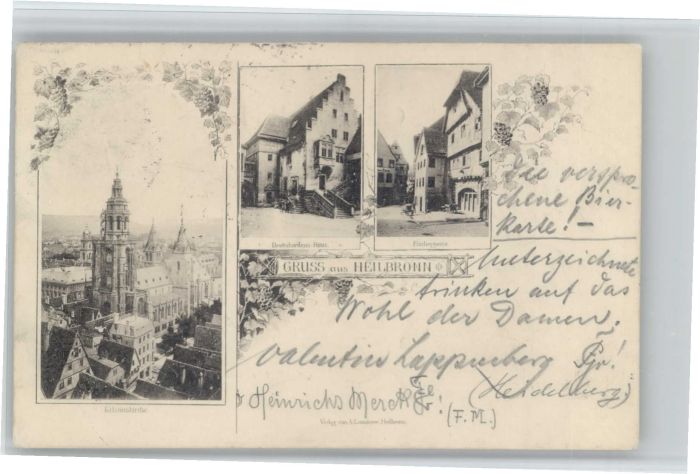 Deutschordens Haus.
GRUSS aus HEILBRONN
Kilianskirche.
die verspro-
chene Bier-
karte! –
Unterzeichnete
trinken auf das
Wohl der Damen.
Valentin Lappenberg
(Heidelberg)
Heinrichs Merck
(F. M.)
Verlag von Heilbronn.